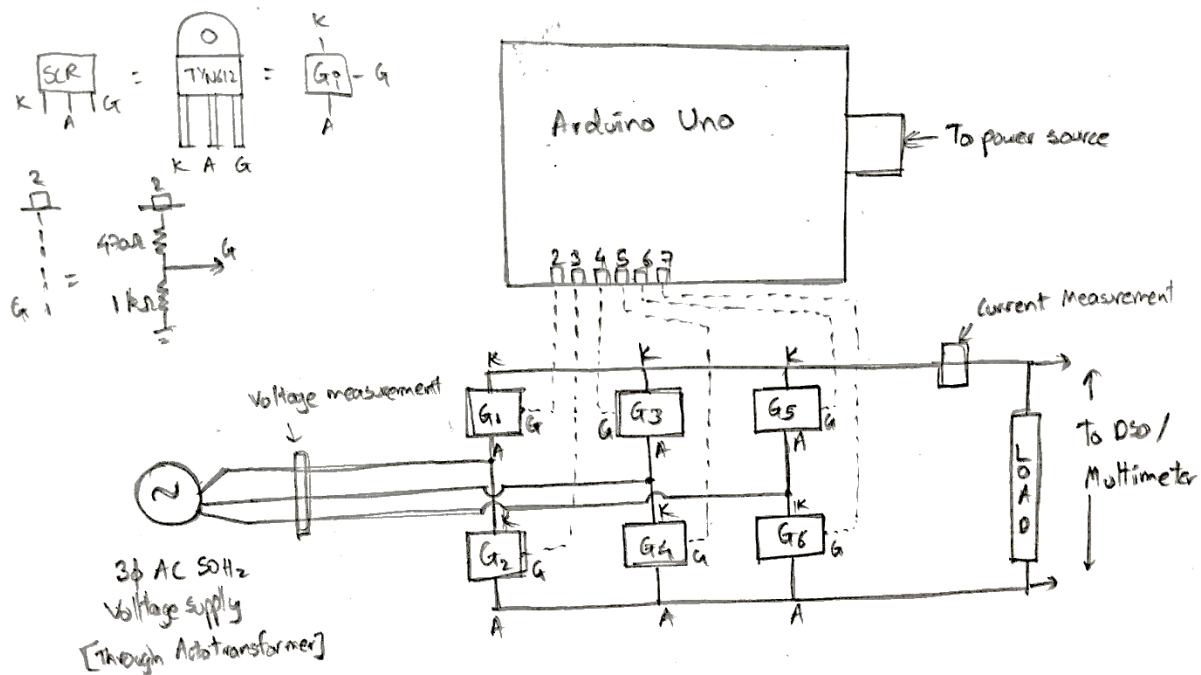 SCR
K A G
=
TYN612
K A G
=
K
Gi - G
A
2
G
=
2
470Ω
G
1kΩ
Arduino Uno
To power source
2 3 4 5 6 7
Current Measurement
Voltage measurement
K K K
G1 G
G G3
G5 G
A A A
K K K
G2 G
G4 G
G6 G
A A A
LOAD
To DSO /
Multimeter
~
3ϕ AC 50Hz
Voltage supply
[Through Autotransformer]